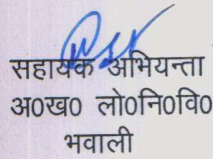 सहायक अभियन्ता
अ०ख० लो०नि०वि०
भवाली